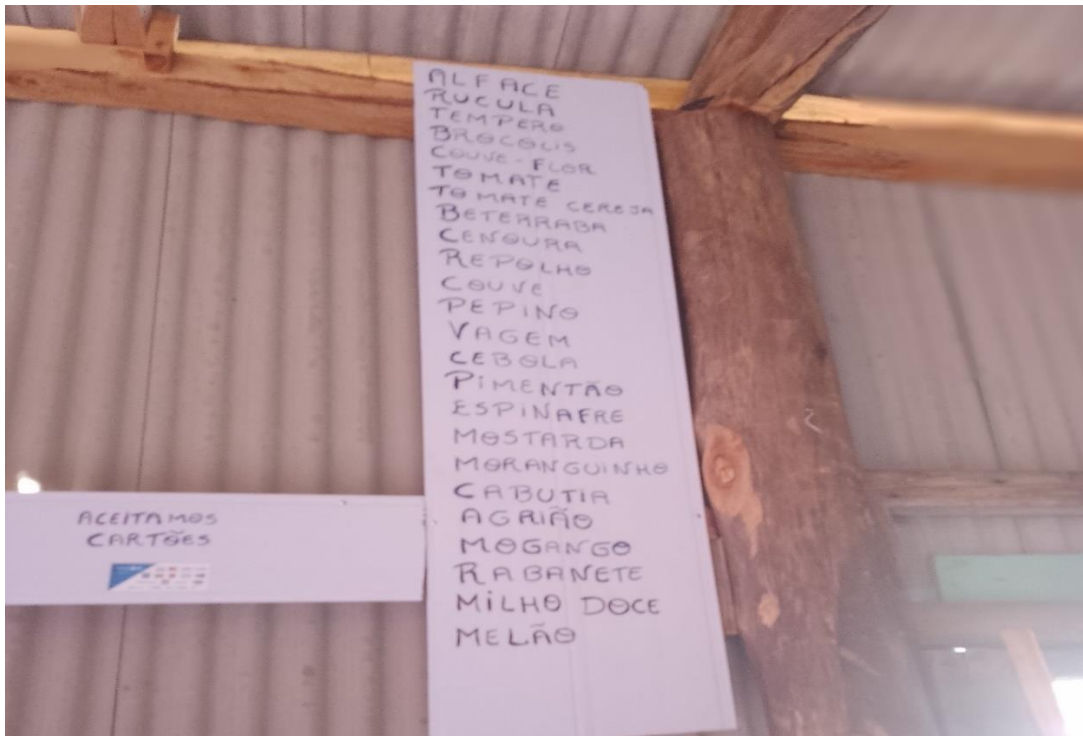 ALFACE
RUCULA
TEMPERO
BROCOLIS
COUVE-FLOR
TOMATE
TOMATE CEREJA
BETERRABA
CENOURA
REPOLHO
COUVE
PEPINO
VAGEM
CEBOLA
PIMENTÃO
ESPINAFRE
MOSTARDA
MORANGUINHO
CABUTIA
AGRIÃO
MOGANGO
RABANETE
MILHO DOCE
MELÃO
ACEITAMOS
CARTÕES